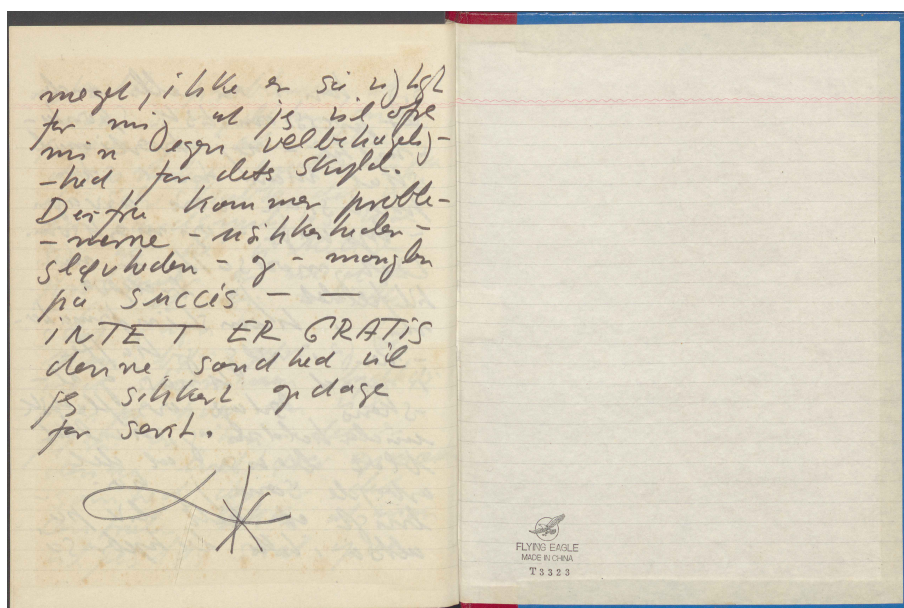 meget, ikke er så vigtigt
for mig at jeg vil ofre
min egen velbehagelig-
-hed for dets skyld.
Derfra kommer proble-
-merne - usikkerheden -
sløvheden - og - manglen
på succés - —
INTET ER GRATIS
denne sandhed vil
jeg sikkert opdage
for sent.
FLYING EAGLE
MADE IN CHINA
T3323